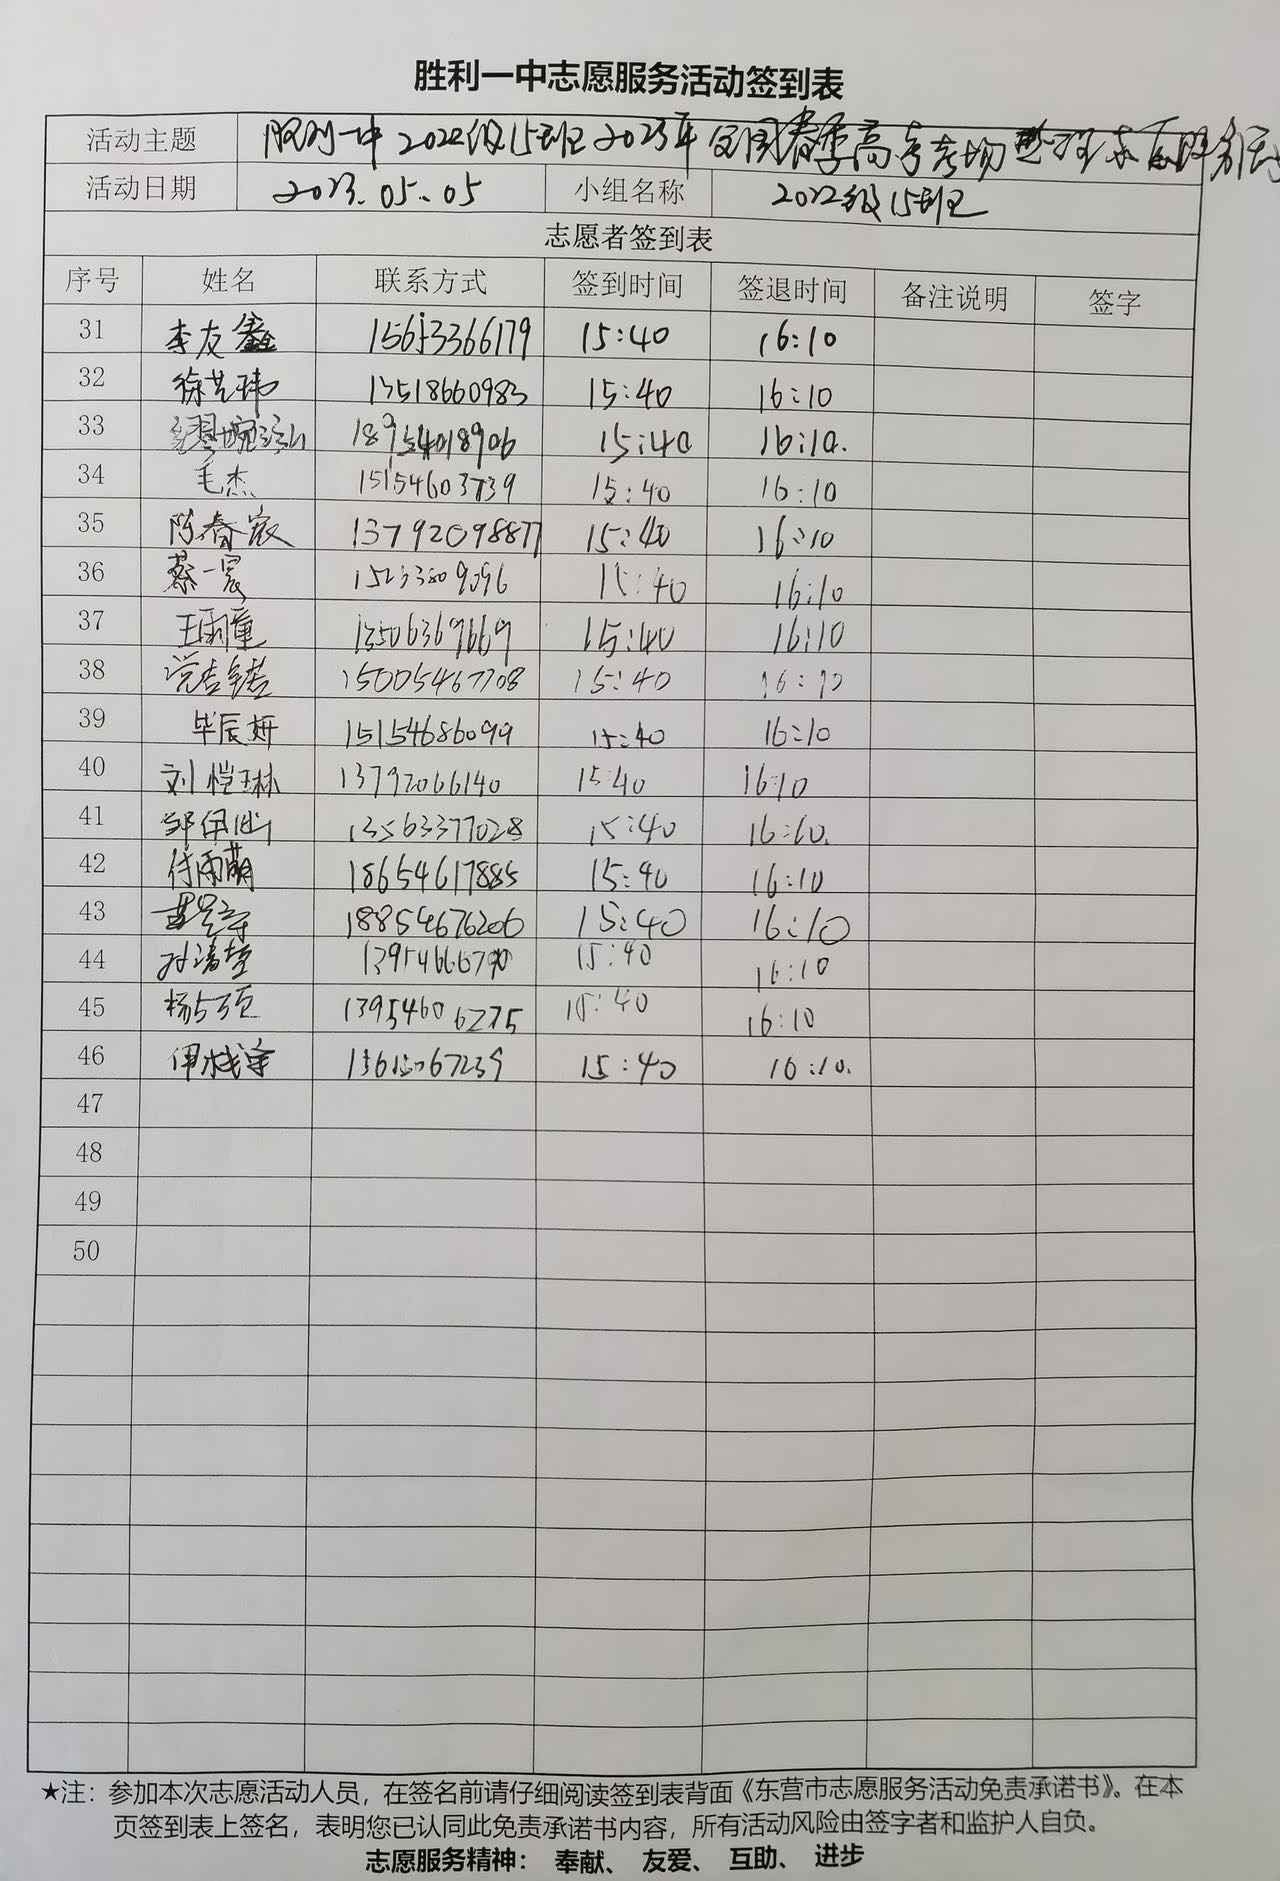 胜利一中志愿服务活动签到表
活动主题 胜利一中2022级15班2023年全国春季高考考场整理志愿服务活动
活动日期 2023.05.05 小组名称 2022级15班
志愿者签到表
序号 姓名 联系方式 签到时间 签退时间 备注说明 签字
31 李友鑫 15653366179 15:40 16:10
32 徐艺玮 13518660983 15:40 16:10
33 18954018906 15:40 16:10.
34 毛杰 15154603739 15:40 16:10
35 陈春 13792098877 15:40 16:10
36 蔡一宸 15:40 16:10
37 王雨童 13506369669 15:40 16:10
38 15005467708 15:40 16:10
39 毕辰妍 15154686099 15:40 16:10
40 刘恺琳 13792066140 15:40 16:10
41 邹伊 13563377028 15:40 16:10.
42 付雨萌 18654617885 15:40 16:10
43 18854676206 15:40 16:10
44 孙清 15:40 16:10
45 杨 13954606275 15:40 16:10
46 15:40 16:10.
47
48
49
50
★注：参加本次志愿活动人员，在签名前请仔细阅读签到表背面《东营市志愿服务活动免责承诺书》。在本
页签到表上签名，表明您已认同此免责承诺书内容，所有活动风险由签字者和监护人自负。
志愿服务精神： 奉献、 友爱、 互助、 进步